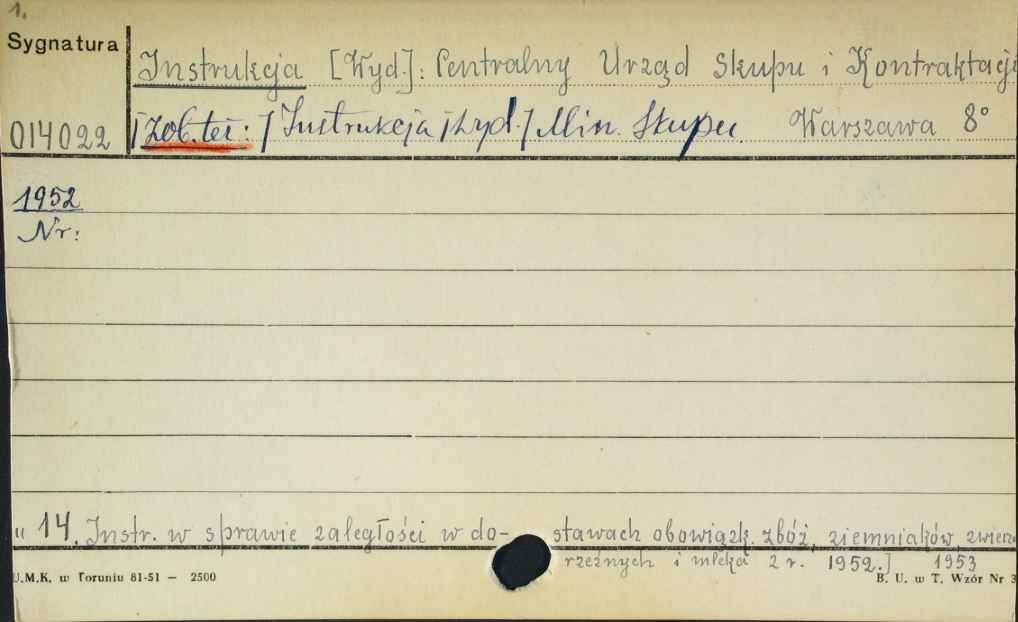 1.
Sygnatura
Instrukcja [Wyd.]: Centralny Urząd Skupu i Kontraktacji
014022 [Zob. też:] Instrukcja [Wyd.] Min. Skupu. Warszawa 8°
1952
Nr:
" 14. Instr. w sprawie zaległości w do- stawach obowiązk. zbóż, ziemniaków, zwie
rzeźnych i mleka z r. 1952.] 1953
U.M.K. w Toruniu 81-51 — 2500 B. U. w T. Wzór Nr 3